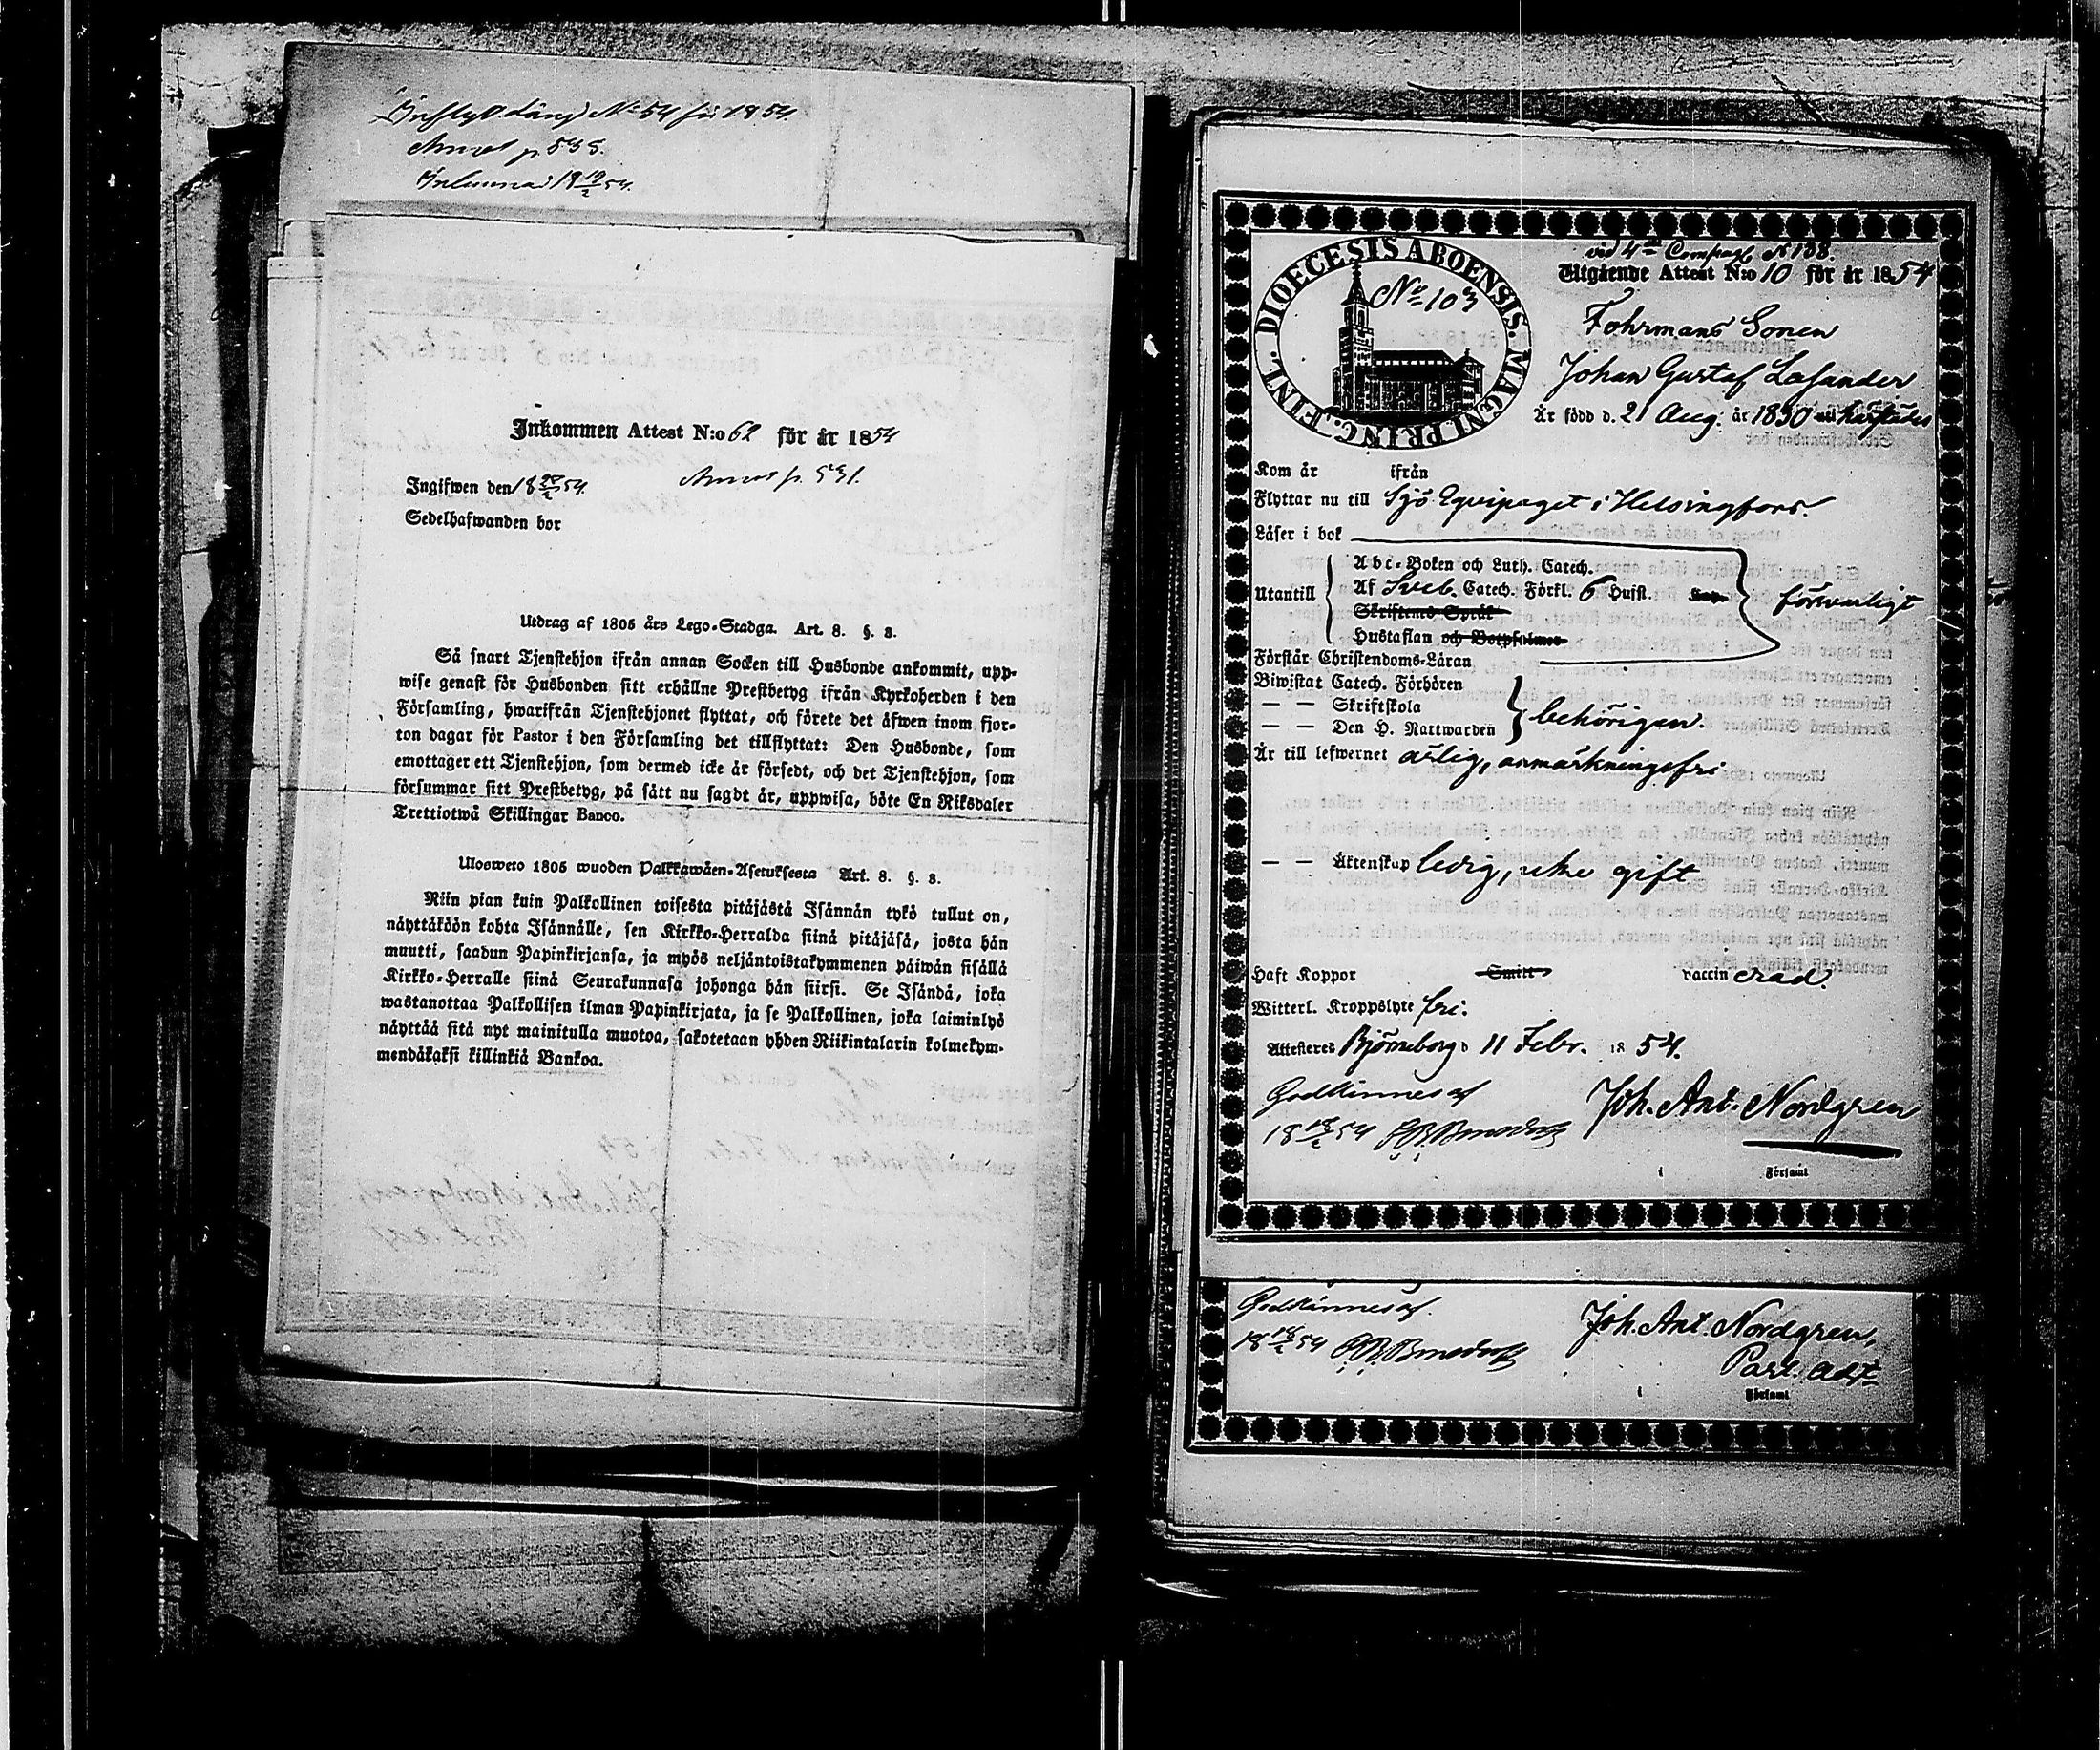 Inflyttn. Längd No 54 för 1854.
Annot p. 535.
Inlemnad 18 19/2 54.
Inkommen Attest N:o 62 för år 1854
Annot p. 531.
Ingifwen den 18 20/2 54.
Sedelhafwanden bor
Utdrag af 1805 års Lego-Stadga. Art. 8. §. 8.
Så snart Tjenstehjon ifrån annan Socken till Husbonde ankommit, upp-
wise genast för Husbonden sitt erhållne Prestbetyg ifrån Kyrkoherden i den
Församling, hwarifrån Tjenstehjonet flyttat, och förete det äfwen inom fjor-
ton dagar för Pastor i den Församling det tillflyttat: Den Husbonde, som
emottager ett Tjenstehjon, som dermed icke är försedt, och det Tjenstehjon, som
försummar sitt Prestbetyg, på sätt nu sagdt är, uppwisa, böte En Riksdaler
Trettiotwå Skillingar Banco.
Ulosweto 1805 wuoden Palkkawäen-Asetuksesta Art. 8. §. 8.
Niin pian kuin Palkollinen toisesta pitäjästä Isännän tykö tullut on,
näyttäköön kohta Isännälle, sen Kirkko-Herralda siinä pitäjäsä, josta hän
muutti, saadun Papinkirjansa, ja myös neljäntoistakymmenen päiwän sisällä
Kirkko-Herralle siinä Seurakunnasa johonga hän siirsi. Se Isändä, joka
wastanottaa Palkollisen ilman Papinkirjata, ja se Palkollinen, joka laiminlyö
näyttää sitä nyt mainitulla muotoa, sakotetaan yhden Riikintalarin kolmekym-
mendäkaksi killinkiä Bankoa.
DIOECESIS ABOENSIS. MAGNI PRINC. FINL.
No 103
vid 4de Compag. N 138.
Utgående Attest N:o 10 för år 1854
Fohrmans Sonen
Johan Gustaf Lasander
Är född d. 21 Aug. är 1830
Kom år ifrån
Flyttar nu till Sjö Equipaget i Helsingfors.
Läser i bok
Utantill
Abc-Boken och Luth. Catech.
Af Sveb. Catech. Förkl. 6 Hufst.
Skriftenes Språk
Hustaflan och Botpsalmer
försvarligt
Förstår Christendoms-Läran
Biwistat Catech. Förhören
— — Skriftskola
— — Den H. Nattwarden
behörigen.
Är till lefwernet ärlig, anmärkningsfri
— — Äktenskap ledig, icke gift
Haft Koppor Smitt vaccinerad.
Witterl. Kroppslyte fri.
Attesteres Björneborg d 11 Febr. 1854.
Godkännes af
Joh. Ant. Nordgren
18 18/2 54
i Församl
Godkännes af.
Joh. Ant. Nordgren,
18 18/2 54
Past. adj.
i Församl